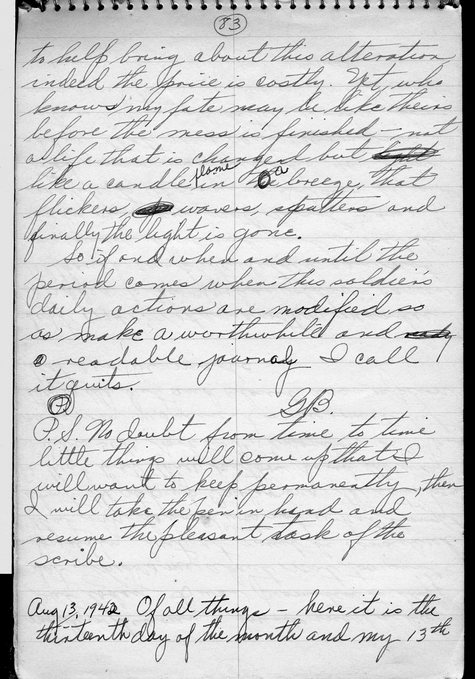 83
to help bring about this alteration,
indeed the price is costly. Yet, who
knows my fate may be like theirs
before the mess is finished – not
a life that is changed but
like a candle flame in a breeze, that
flickers, wavers, spatters and
finally the light is gone.
So if and when and until the
period comes when this soldier's
daily actions are modified so
as make a worthwhile and
a readable journal, I call
it quits.
G.B.
P.S. No doubt from time to time
little things will come up that I
will want to keep permanently, then
I will take the pen in hand and
resume the pleasant task of the
scribe.
Aug 13, 1942 Of all things – here it is the
thirteenth day of the month and my 13th